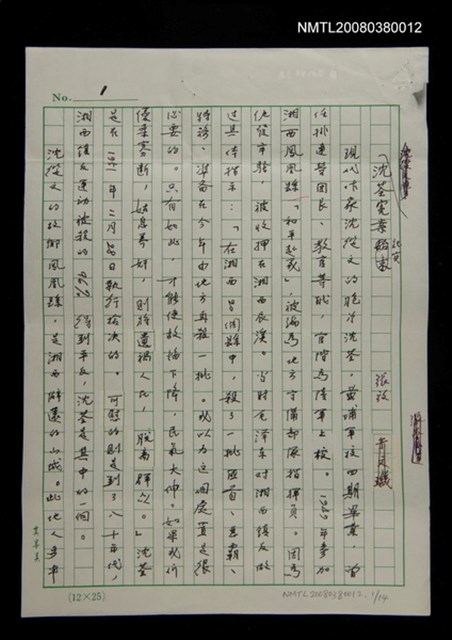 NMTL20080380012
No. 1
「沈荃冤案
張放
現代作家沈從文的胞弟沈荃，黃埔軍校四期畢業，曾
任排連營團長、教官等職，官階為陸軍上校。一九四九年參加
湘西鳳凰縣「和平起義」，被編為地方守備部隊指揮員。因為
，被收押在湘西辰溪。當時毛澤東對湘西鎮反做
過具體指示：「在湘西 個縣中，殺了一批匪首、惡霸、
特務，準備在今年由地方再殺一批。我以為這個處置是很
必要的。只有如此，才能使敵焰下降，民氣大伸。如果我們
優柔寡斷，姑息養奸，則將遺禍人民，脫離群眾。」沈荃
是在一九五一年 月 日執行槍決的。可照的則是到了八十年代，
湘西鎮反運動被殺的 % 得到平反，沈荃是其中的一個。
沈從文的故鄉鳳凰縣，是湘西 的山城。此地人多半
(12×25)
NMTL20080380012. 1/14